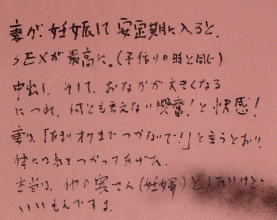 妻が、妊娠して安定期に入ると、
SEXが最高に。(子作りの時と同じ)
中出し、そして、おなかが大きくなる
につれ、何とも言えない興奮!と快感!
妻は、「 までつかないで!」と言うとおり、
体に気をつかってあげた。
本当は、他の実さん(妊婦)と したいけど、
いいもんですよ